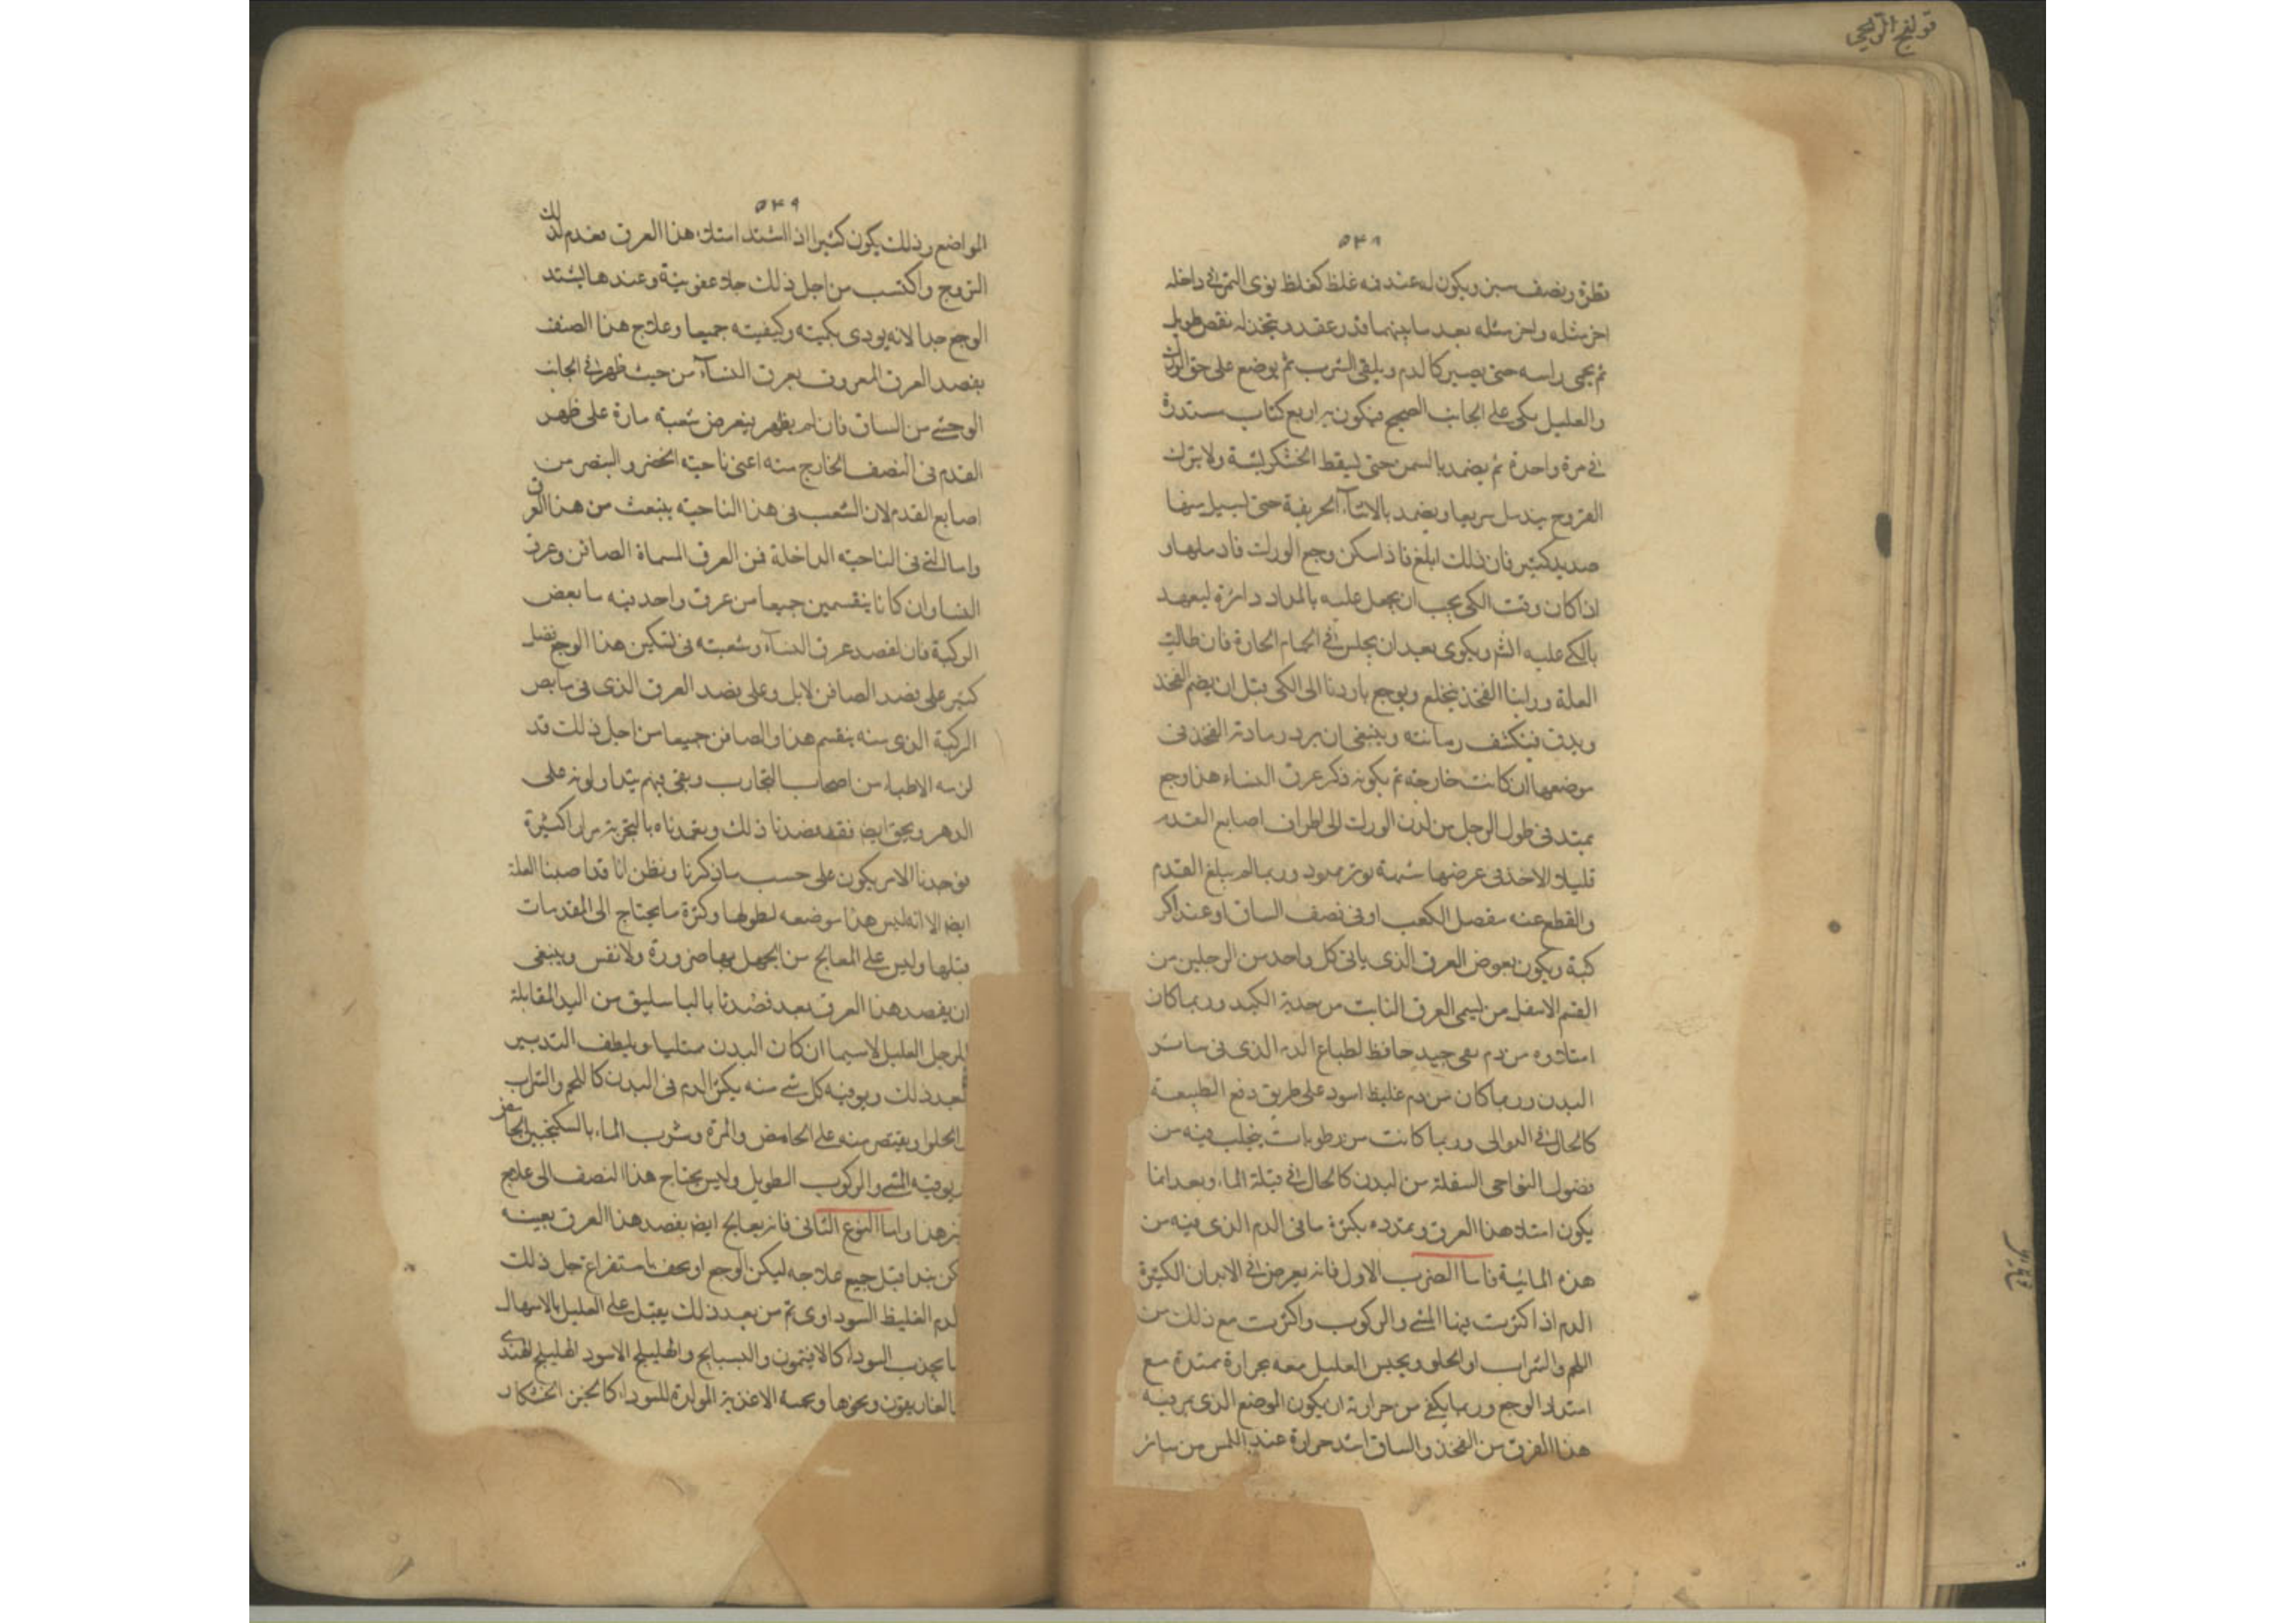 ٥٣٨
قطره ونصف سبر ويكون له عند فه غلظ كغلظ نوى التمر في داخله
اخر مثله واخر مثله بعد ما بينهما قدر عقد ويتخذ له نقص طويل
ثم يحمى راسه حتى يصير كالدم ويلقى الشرب ثم يوضع على حق الورك
والعليل يكى على الجانب الصحيح فيكون اربع كتاب مستدرة
في مرة واحدة ثم يضمد بالسمن حتى ليقط الخشكريشة ولا يترك
القروح يندمل سريعا ويضمد بالاشيآء الحريفة حتى ليسيل منها
صديد كثير فان ذلك ابلغ فاذا سكن وجع الورك فادملها و
اذا كان وقت الكى يجب ان يجعل عليه بالمداد دائرة ليعهد
بالكى عليه الثم ويكوى بعد ان يجلس في الحمام الحارة فان طالت
العلة وراينا الفخذ ينخلع ويوجع باردنا الى الكى قبل ان يضم الفخذ
ويدق فينكشف رمانته وينبغى ان يرد رمادة الفخذ فى
موضعها ان كانت خارجة ثم يكويه ذكر عرق النساء هذا وجع
يمتد فى طول الرجل من لدن الورك الى اطراف اصابع القدم
قليل الاخذ فى عرضها شبة بوتر ممدود وربما لم يبلغ القدم
والقطع عنه مفصل الكعب او فى نصف الساق او عند اكر
كبة ويكون بعوض العرق الذى ياتى كل واحد من الرجلين من
القسم الاسفل من ليمى العرق النابت من حدبة الكبد وربما كان
امتلاوه من دم نقى جيد حافظ لطباع الدم الذى فى سائر
البدن وربما كان من دم غليظ اسود على طريق دفع الطبيعة
كالحال في الدوالى وربما كانت من رطوبات ينجلب فيه من
فضول النواحى السفلة من البدن كالحال في قيلة الماء وبعد انما
يكون امتلاء هذا العرق وتمدده بكثرة ما فى الدم الذى فيه من
هذه المائية فاما الضرب الاول فانه يعرض في الابدان الكثيرة
الدم اذا كثرت فيها المشى والركوب واكثرت مع ذلك من
اللحم والشراب او الحلو ويحس العليل معه بحرارة ممتدة مع
امتداد الوجع وربما يكفى من حرارته ان يكون الوضع الذى يمر فيه
هذا الفرق من الفخذ والساق اشد حرارة عند اللمس من سائر
٥٣٩
المواضع وذلك يكون كثيرا اذا اشتد امتلاء هذا العرق بعدم لذلك
التروح واكتسب من اجل ذلك جلا عفونية وعندها يشتد
الوجع جدا لانه يودى بكميته وكيفيته جميعا وعلاج هذا الصنف
بفصد العرق المعروف بعرق النسآء من حيث ظهر في الجانب
الوحشى من الساق فان لم يظهر فيعرض شعبته مارة على ظهر
القدم فى النصف الخارج منه اعنى ناحية الخنصر والبنصر من
اصابع القدم لان الشعب فى هذا الناحية ينبعث من هذا العرق
واما التى فى الناحية الداخلة فمن العرق المسماة الصافن وعرق
النسا وان كانا ينقسمين جميعا من عرق واحد فيه ما بعض
الركبة فان لفصد عرق النسآء وشعبته فى تسكين هذا الوجع فضل
كثير على فصد الصافن لابل وعلى فصد العرق الذى فى مابض
الركبة الذى منه ينقسم هذا والصافن جميعا من اجل ذلك قد
لزمه الاطباء من اصحاب التجارب وبقى فيهم يتداولونه على
الدهر ويحق ايضا فقد فصدنا ذلك وتعمدناه بالتجربة مرارا كثيرة
فوجدنا الامر يكون على حسب ما ذكرنا ونظن انا قد اصبنا العلة
ايضا الا انه ليس هذا موضعه لطولها وكثرة ما يحتاج الى المقدمات
قبلها وليس على المعالج من الجهل بها ضرورة ولا نقس وينبغى
ان يفصد هذا العرق بعد فصدنا بالباسليق من اليد المقابلة
للرجل العليل لاسيما ان كان البدن ممتليا ويلطف التدبير
بعد ذلك ويوقيه كل شى منه يكثر الدم فى البدن كاللحم والشراب
والحلوا ويقتصر منه على الحامض والمرة وشرب الماء بالسكنجبين الحامض
ويوقيه المشى والركوب الطويل وليس يحتاج هذا النصف الى علاج
غير هذا واما النوع الثانى فانه يعالج ايضا بفصد هذا العرق بعينه
لكن يبدا قبل جميع علاجه ليكن الوجع او يخف باستفراغ جل ذلك
الدم الغليظ السوداوى ثم من بعد ذلك يقبل على العليل بالاسهال
بما يجذب السوداء كالافتيمون والبسبايج والهليلج الاسود الهليلج الهندى
والغاريقون ونحوها ويحمه الاغذية المولدة للسوداء كالخبز الخشكار